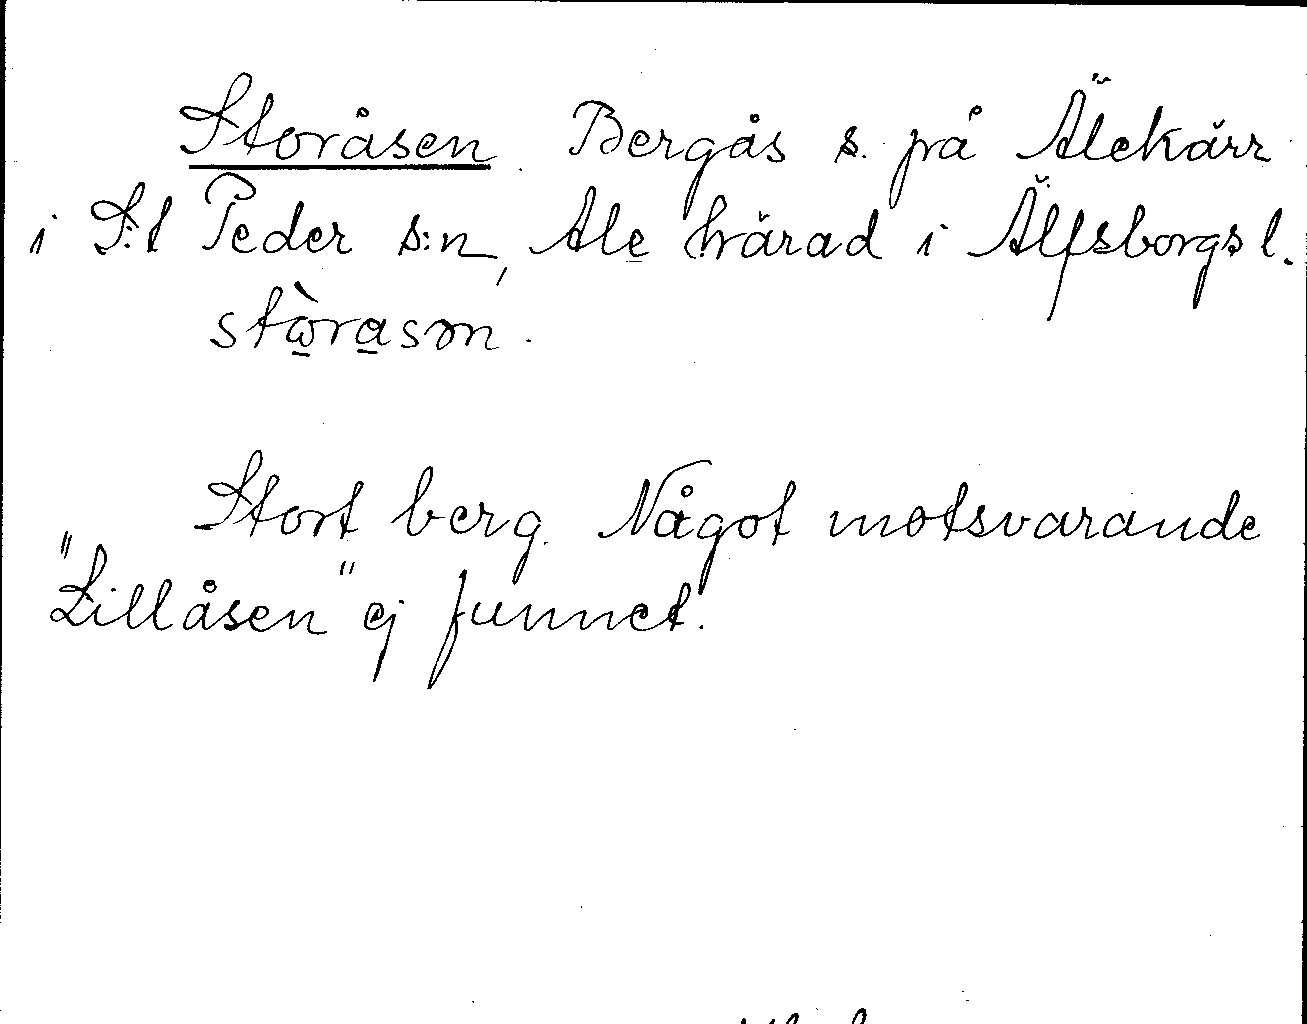 Storåsen. Bergås s. på Älekärr
i S:t Peder s:n, Ale härad i Älfsborgs l.
stòrasən.
Stort berg. Något motsvarande
"Lillåsen" ej funnet.